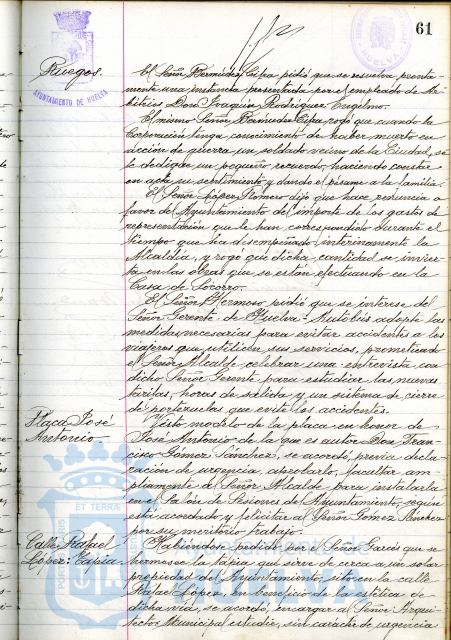 61
AYUNTAMIENTO DE HUELVA
HUELVA
Ruegos.
El Señor Bermúdez Cipa pidió que se resuelva pronta-
mente una instancia presentada por el empleado de Ar-
bitrios Don Joaquín Rodríguez
El mismo Señor Bermúdez Cipa rogó que cuando la
Corporación tenga conocimiento de haber muerto en
acción de guerra un soldado vecino de la Ciudad, se
le dedique un pequeño recuerdo, haciendo constar
en acta su sentimiento y dando el pésame a la familia.
El Señor López Romero dijo que hace renuncia a
favor del Ayuntamiento del importe de los gastos de
representación que le han correspondido durante el
tiempo que ha desempeñado interinamente la
Alcaldía, y rogó que dicha cantidad se invier-
ta en las obras que se están efectuando en la
Casa de Socorro.
El Señor Hermoso pidió que se interese del
Señor Gerente de Huelva-Autobús adopte las
medidas necesarias para evitar accidentes a los
viajeros que utilicen sus servicios, prometiendo
el Señor Alcalde celebrar una entrevista con
dicho Señor Gerente para estudiar las nuevas
tarifas, horas de salida y un sistema de cierre
de portezuelas que evite los accidentes.
Placa José
Antonio.
Visto modelo de la placa en honor de
José Antonio de la que es autor Don Fran-
cisco Gómez Sánchez, se acordó, previa decla-
ración de urgencia, aceptarlo, facultar am-
pliamente al Señor Alcalde para instalarla
en el Salón de Sesiones del Ayuntamiento, según
está acordado, y felicitar al Señor Gómez Sánchez
por su meritorio trabajo.
Calle Rafael
López: Tapia
Habiéndose pedido por el Señor Garcés que se
hermosee la tapia que sirve de cerca a un solar
propiedad del Ayuntamiento, sito en la calle
Rafael López, en beneficio de la estética de
dicha vía, se acordó, encargar al Señor Arqui-
tecto Municipal estudie, sin carácter de urgencia